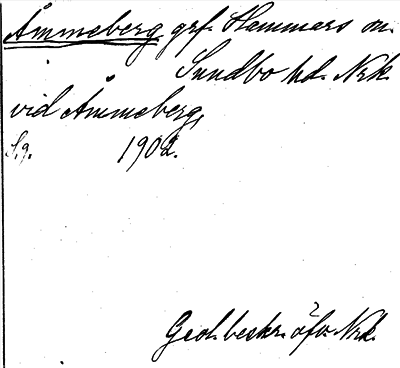 Åmmeberg grf. Hammars sn.
Sundbo hd. Nrk.
vid Åmmeberg,
S.g. 1902.
Geol. beskr. öfv. Nrk.